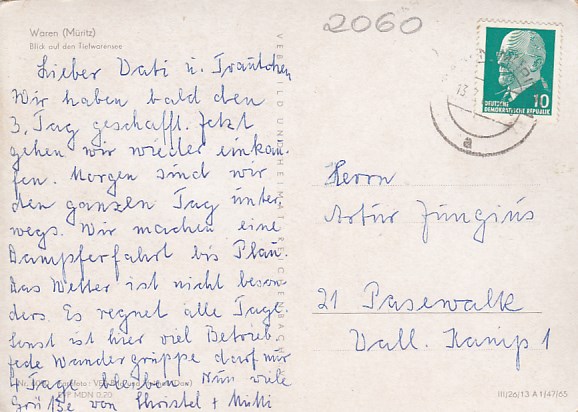 2060
Waren (Müritz)
Blick auf den Tiefwarensee
Lieber Vati u. Traütchen
Wir haben bald den
3. Tag geschafft. Jetzt
gehen wir wieder einkau-
fen. Morgen sind wir
den ganzen Tag unter-
wegs. Wir machen eine
Dampferfahrt bis Plau.
Das Wetter ist nicht beson-
ders. Es regnet alle Tage
Sonst ist hier viel Betrieb.
jede Wandergruppe darf nur
4 Tage bleiben. Nun viele
Grüße von Christel + Mutti
VEB BILD UND HEIMAT REICHENBACH
10
DEUTSCHE
DEMOKRATISCHE REPUBLIK
13.
a
Herrn
Artur Jüngiüs
21 Pasewalk
Vall. Kamp 1
EVP MDN 0,20
III/26/13 A 1/47/65